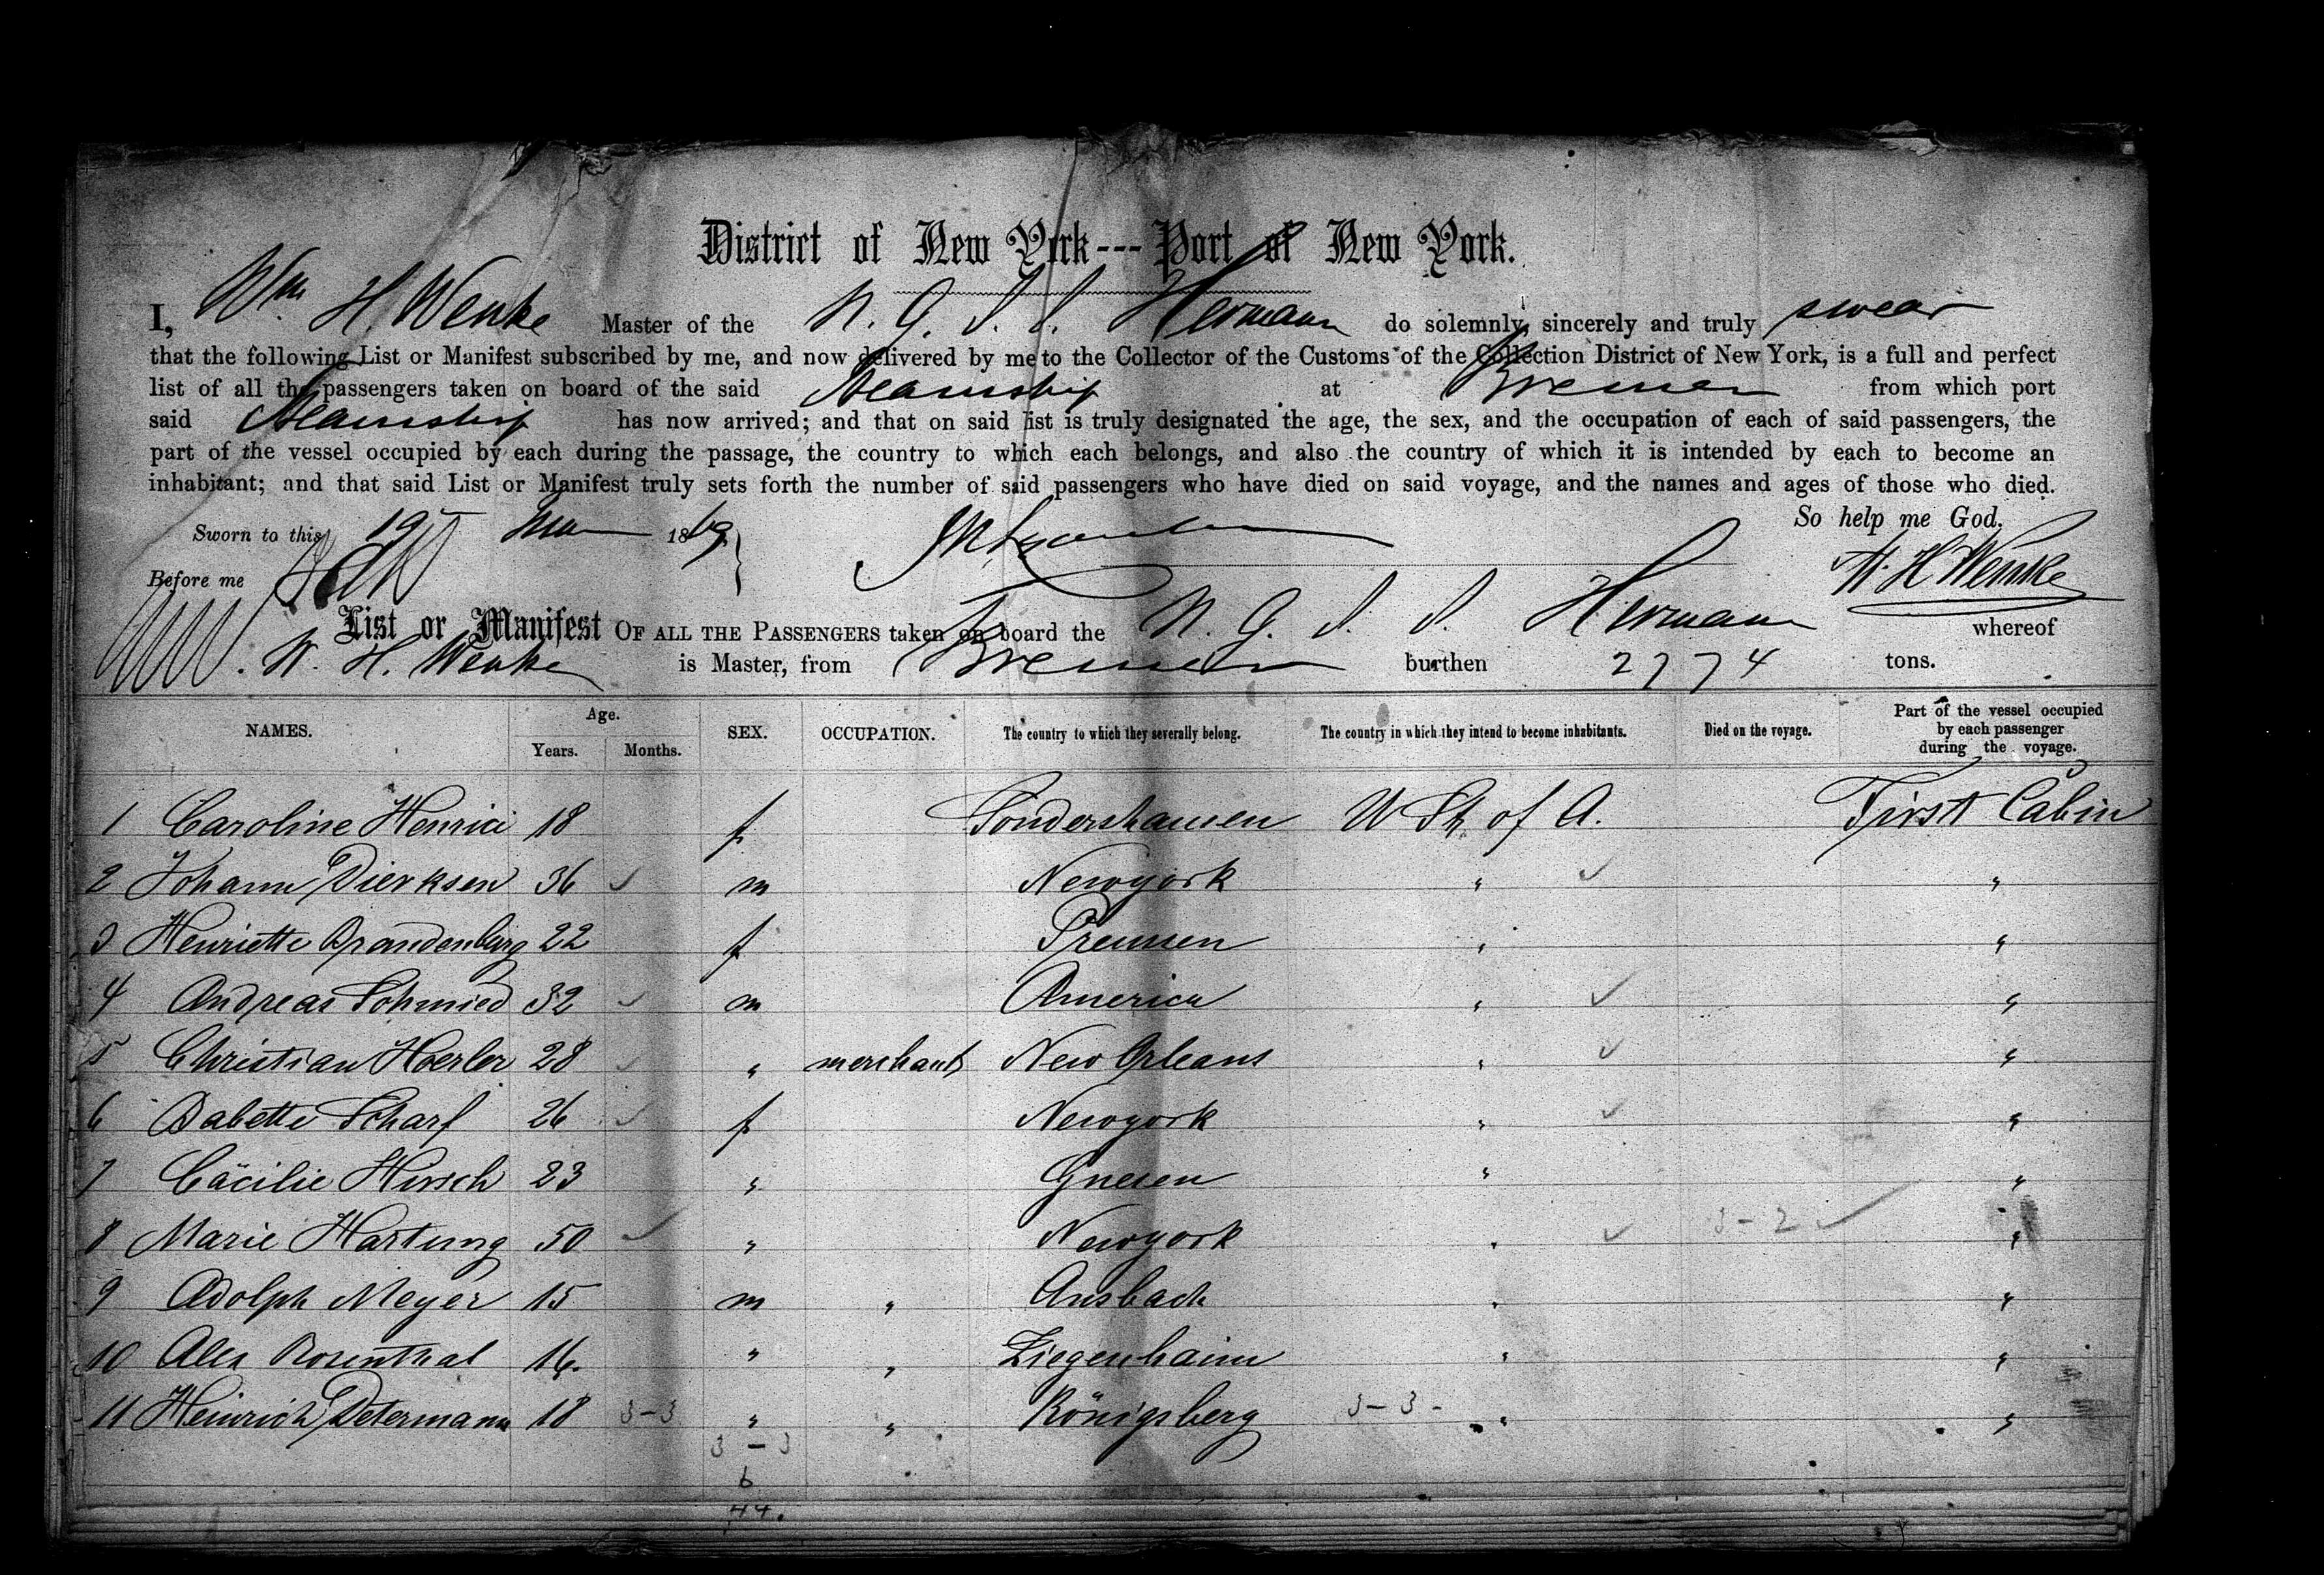 District of New York --- Port of New York.
I, Wm H. Wenke Master of the N. G. S. S. Hermann do solemnly, sincerely and truly swear
that the following List or Manifest subscribed by me, and now delivered by me to the Collector of the Customs of the Collection District of New York, is a full and perfect
list of all the passengers taken on board of the said Steamship at Bremen from which port
said Steamship has now arrived; and that on said list is truly designated the age, the sex, and the occupation of each of said passengers, the
part of the vessel occupied by each during the passage, the country to which each belongs, and also the country of which it is intended by each to become an
inhabitant; and that said List or Manifest truly sets forth the number of said passengers who have died on said voyage, and the names and ages of those who died.
So help me God.
Sworn to this 19 1869
W. H. Wenke
Before me
List or Manifest OF ALL THE PASSENGERS taken on board the N. G. S. S. Hermann whereof
W. H. Wenke is Master, from Bremen burthen 2774 tons.
NAMES. Age. Years. Months. SEX. OCCUPATION. The country to which they severally belong. The country in which they intend to become inhabitants. Died on the voyage. Part of the vessel occupied by each passenger during the voyage.
1 Caroline Henrici 18 f Sondershausen U St of A. First Cabin
2 Johann Dierksen 36 ✓ m Newyork " ✓ "
3 Henriette Brandenburg 22 f Preussen " "
4 Andreas Schmied 32 ✓ m America " ✓ "
5 Christian Hoerler 28 ✓ " merchant New Orleans " ✓ "
6 Babette Scharf 26 ✓ f Newyork " ✓ "
7 Cäcilie Hirsch 23 " Gnesen " "
8 Marie Hartung 50 ✓ " Newyork " ✓ 3-2 ✓ "
9 Adolph Meyer 15 m " Ansbach " "
10 Alex Rosenthal 16. " " Ziegenhaim " "
11 Heinrich Determann 18 3-3 " " Königsberg 3-3- " "
3-3
6
44.